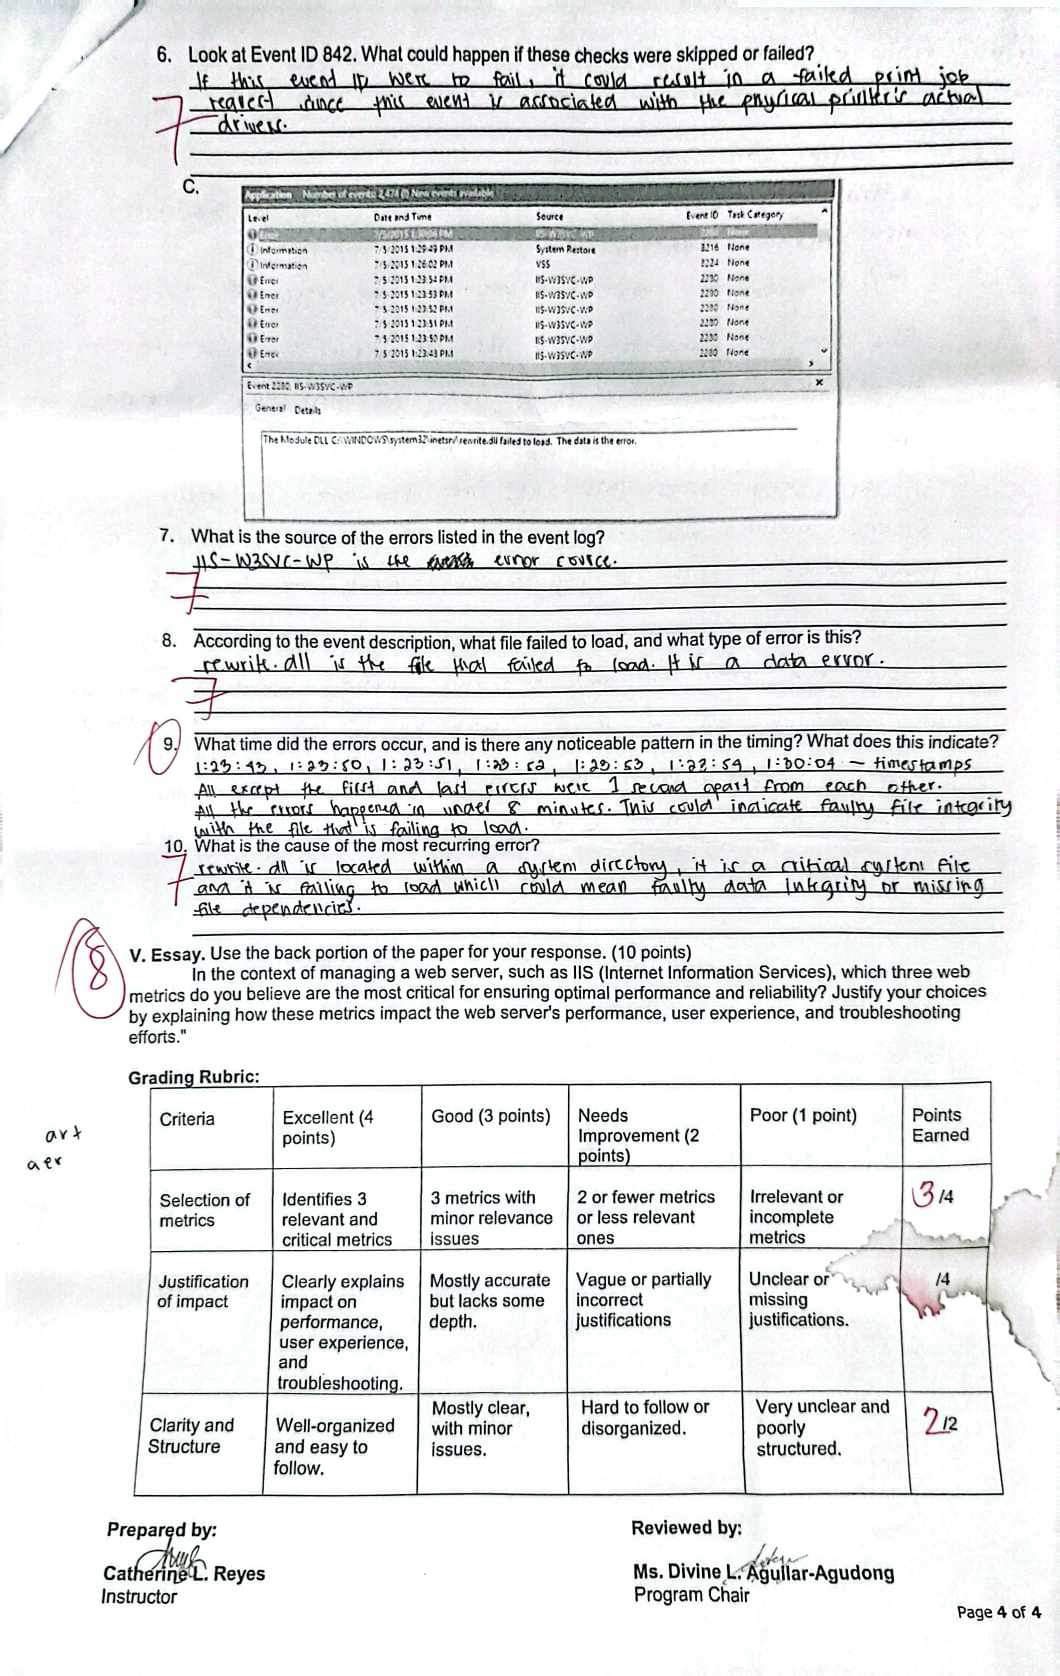 6. Look at Event ID 842. What could happen if these checks were skipped or failed?
If this event ID were to fail, it could result in a failed print job
request since this event is associated with the physical printer's actual
drivers.
C.
Application Number of events: 2,474 (!) New events available
Level Date and Time Source Event ID Task Category
Information 7/5/2015 1:29:49 PM System Restore 8216 None
Information 7/5/2015 1:26:02 PM VSS 8224 None
Error 7/5/2015 1:23:54 PM IIS-W3SVC-WP 2280 None
Error 7/5/2015 1:23:53 PM IIS-W3SVC-WP 2280 None
Error 7/5/2015 1:23:52 PM IIS-W3SVC-WP 2280 None
Error 7/5/2015 1:23:51 PM IIS-W3SVC-WP 2280 None
Error 7/5/2015 1:23:50 PM IIS-W3SVC-WP 2280 None
Error 7/5/2015 1:23:43 PM IIS-W3SVC-WP 2280 None
Event 2280, IIS-W3SVC-WP
General Details
The Module DLL C:\WINDOWS\system32\inetsrv\rewrite.dll failed to load. The data is the error.
7. What is the source of the errors listed in the event log?
IIS-W3SVC-WP is the error source.
8. According to the event description, what file failed to load, and what type of error is this?
rewrite.dll is the file that failed to load. It is a data error.
9. What time did the errors occur, and is there any noticeable pattern in the timing? What does this indicate?
1:23:43, 1:23:50, 1:23:51, 1:23:52, 1:23:53, 1:23:54, 1:30:04 - timestamps
All except the first and last errors were 1 second apart from each other.
All the errors happened in under 8 minutes. This could indicate faulty file integrity
with the file that is failing to load.
10. What is the cause of the most recurring error?
rewrite.dll is located within a system directory, it is a critical system file
and it is failing to load which could mean faulty data integrity or missing
file dependencies.
8
V. Essay. Use the back portion of the paper for your response. (10 points)
In the context of managing a web server, such as IIS (Internet Information Services), which three web
metrics do you believe are the most critical for ensuring optimal performance and reliability? Justify your choices
by explaining how these metrics impact the web server's performance, user experience, and troubleshooting
efforts."
Grading Rubric:
Criteria Excellent (4 points) Good (3 points) Needs Improvement (2 points) Poor (1 point) Points Earned
art
aer
Selection of metrics Identifies 3 relevant and critical metrics 3 metrics with minor relevance issues 2 or fewer metrics or less relevant ones Irrelevant or incomplete metrics 3/4
Justification of impact Clearly explains impact on performance, user experience, and troubleshooting. Mostly accurate but lacks some depth. Vague or partially incorrect justifications Unclear or missing justifications. /4
Clarity and Structure Well-organized and easy to follow. Mostly clear, with minor issues. Hard to follow or disorganized. Very unclear and poorly structured. 2/2
Prepared by: Reviewed by:
Catherine L. Reyes Ms. Divine L. Aguilar-Agudong
Instructor Program Chair
Page 4 of 4